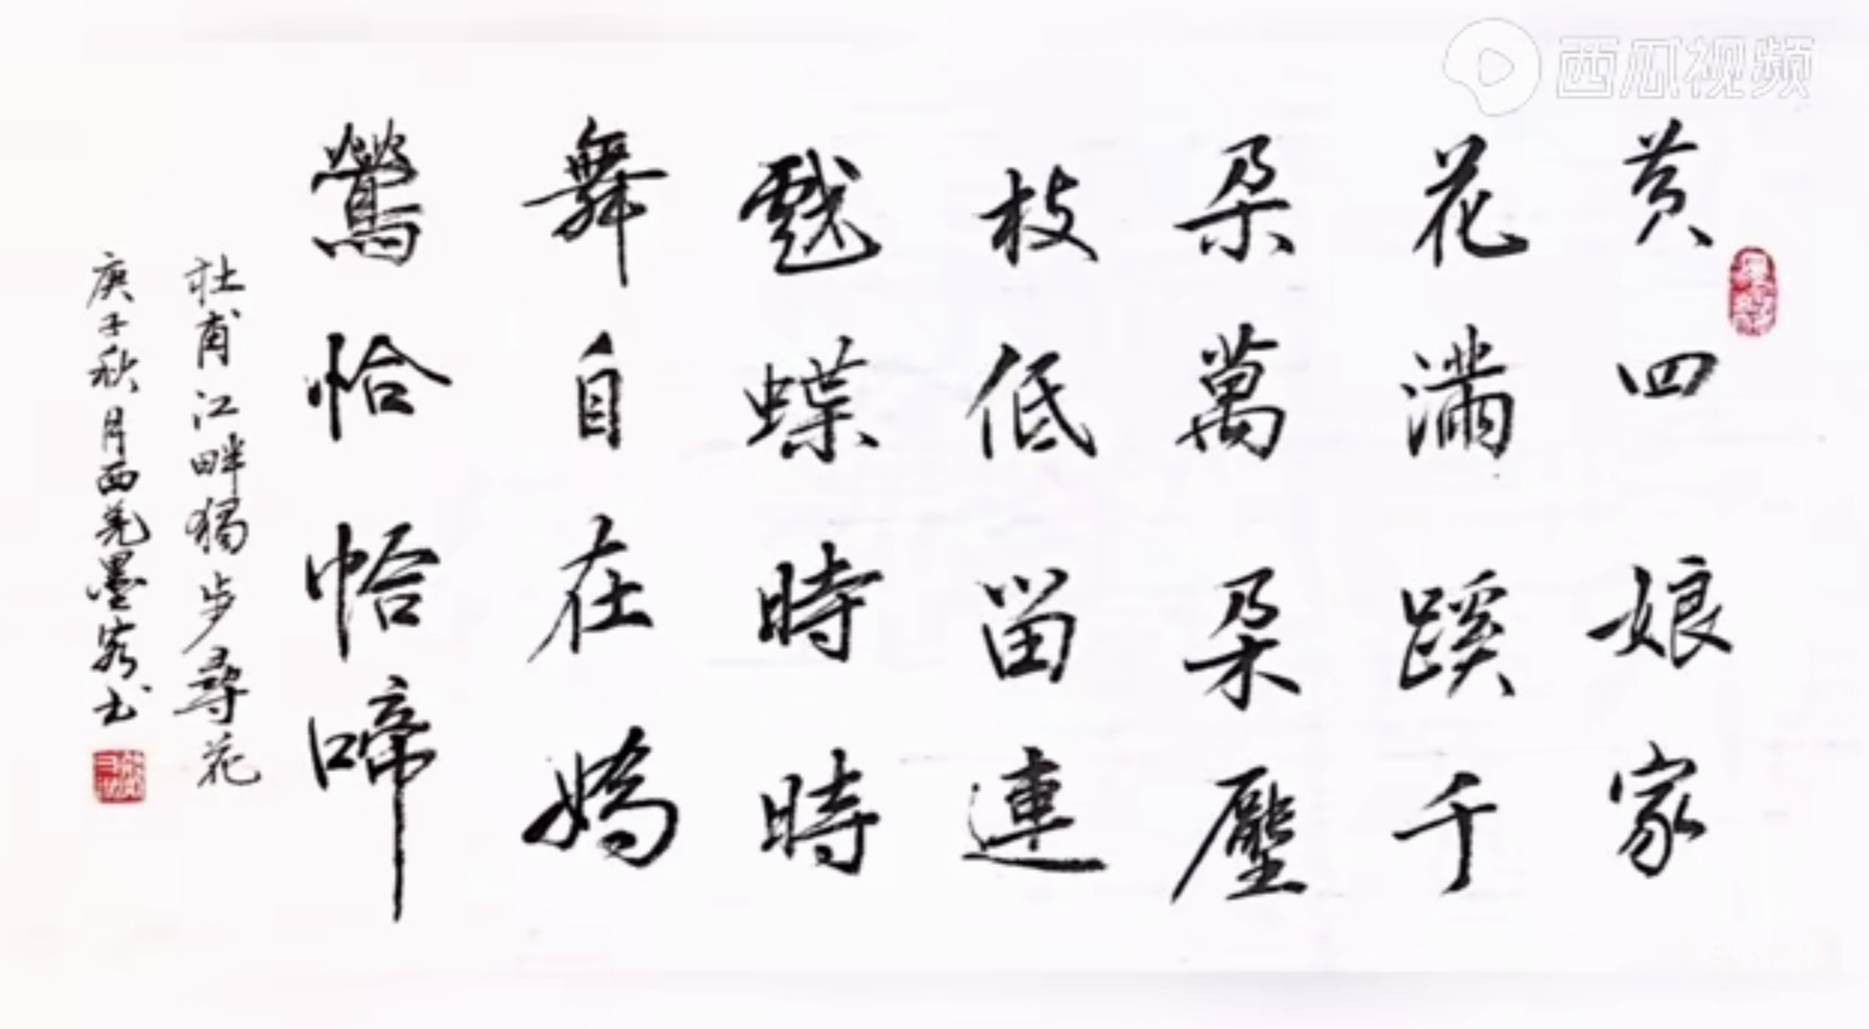 西瓜视频
黄四娘家
花滿蹊千
朵萬朵壓
枝低留連
戲蝶時時
舞自在嬌
鶯恰恰啼
杜甫江畔獨步尋花
庚子秋月西羌墨客书